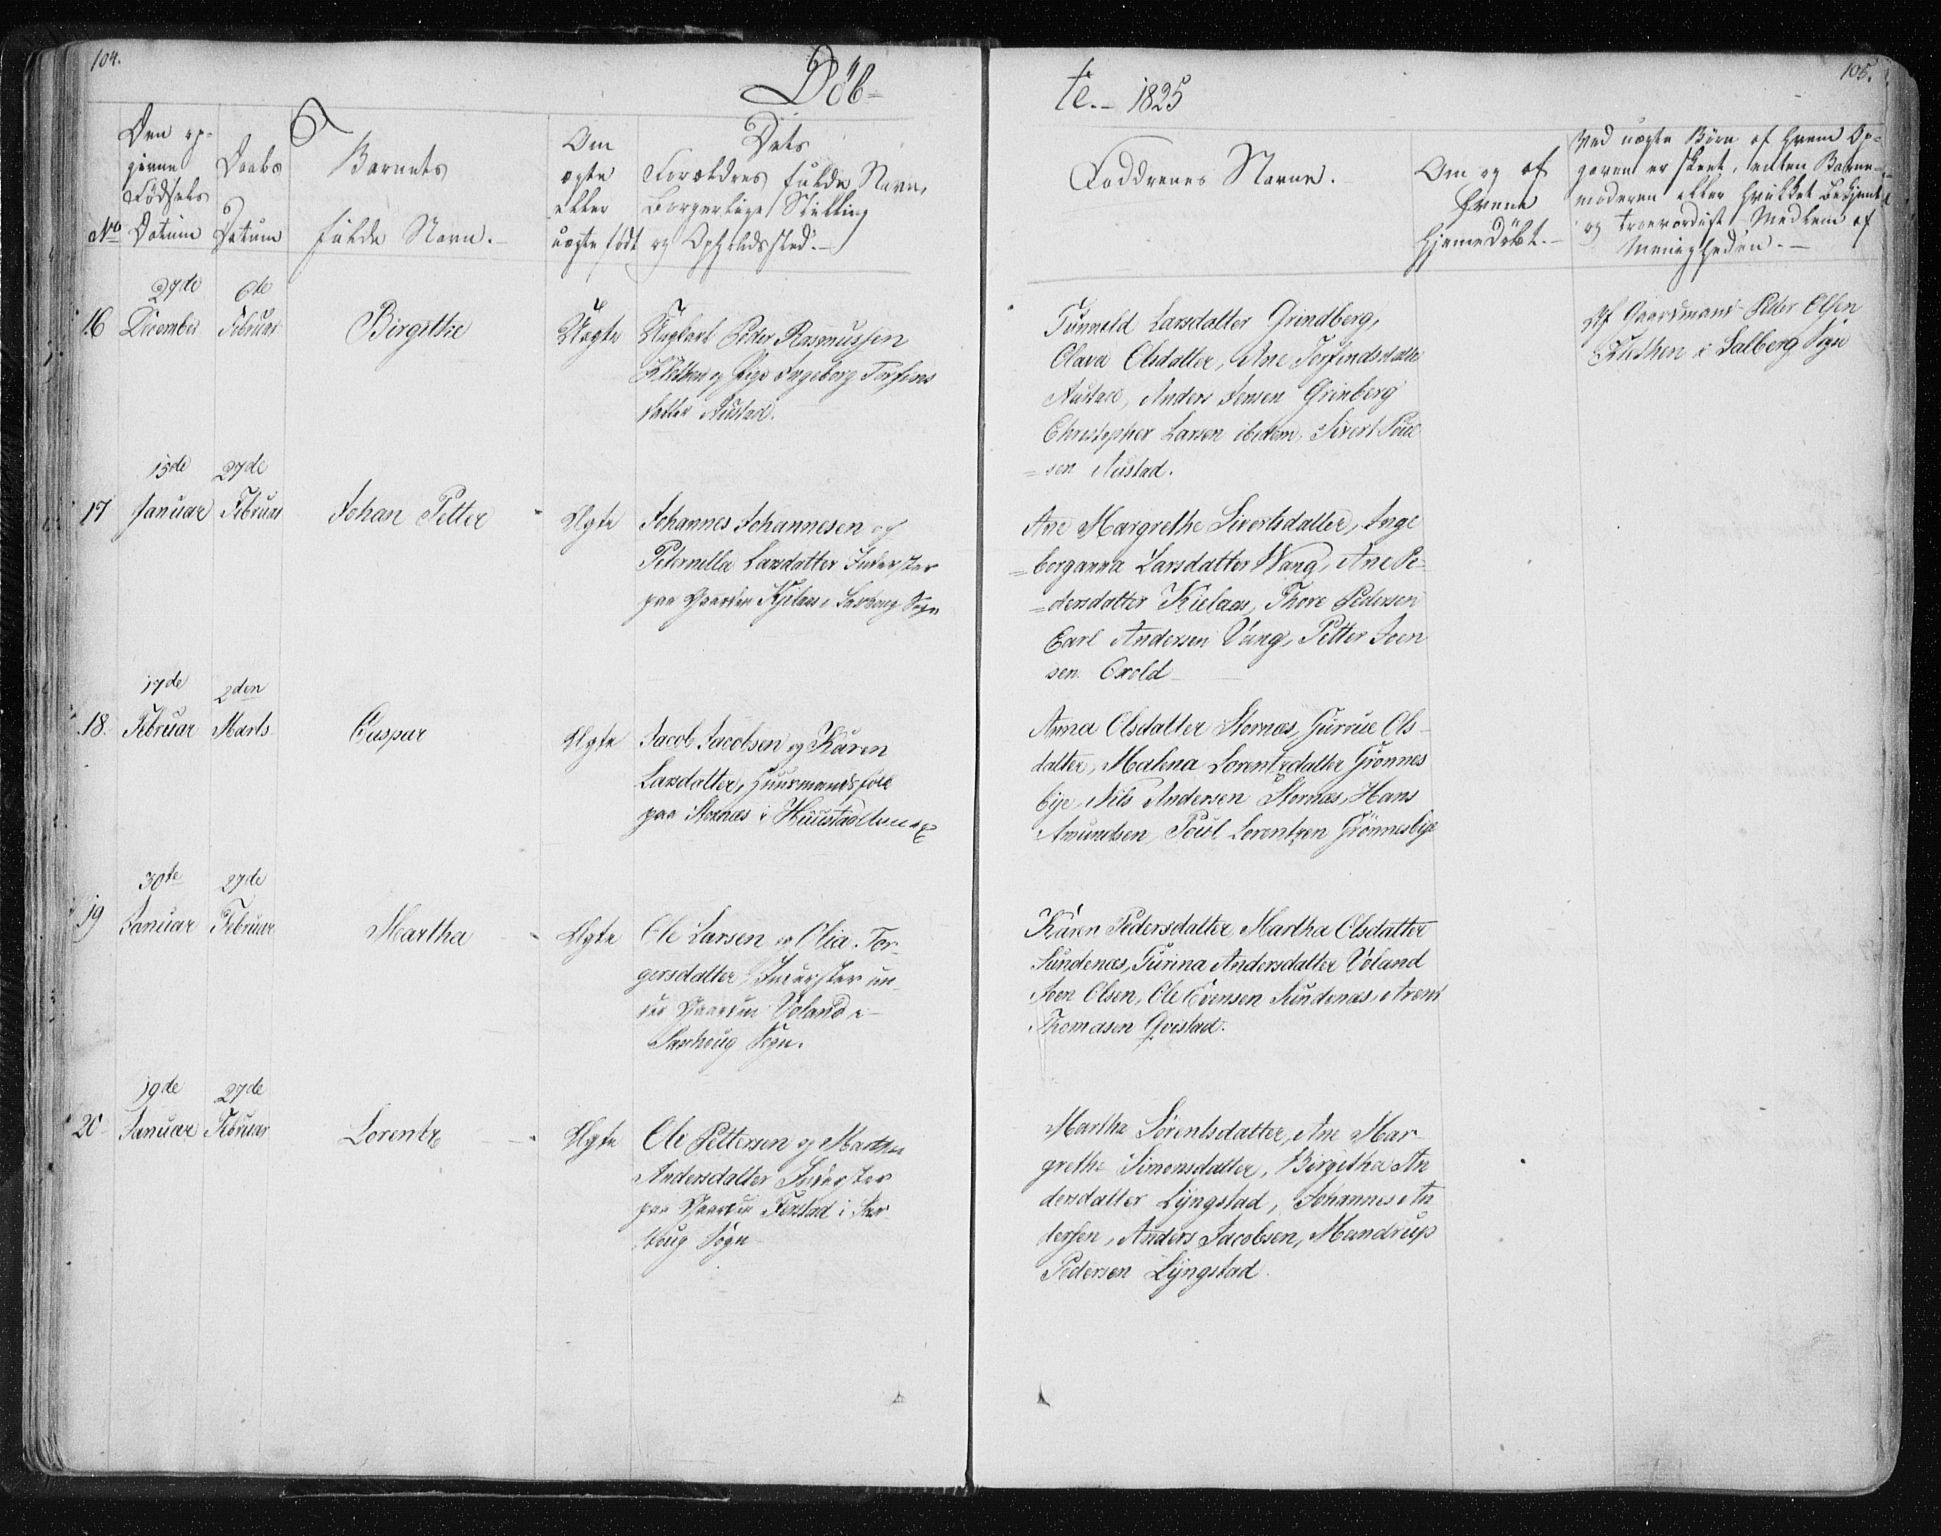 104.
105.
Döb-
te. - 1825
Den op-
givne
Födsels
No Datum
Daabs
Datum
Barnets
fulde Navn. -
Om
ægte
eller
uægte født
Dets
Forældres fulde Navn,
Borgerlige Stilling
og Opholdssted. -
Faddrenes Navne. -
Om og af
hvem
hjemedöbt. -
Ved uægte Börn af hvem Op-
gaven er skeet, enten Barne-
moderen eller hvilket bekjendt
og troeværdigt Medlem af
Menigheden. -
27de 6te
16 December Februar Birgithe Uægte Ungkarl Peder Rasmussen
og Pige Ingeborg Torfins
datter Austad.
Gunneld Larsdatter Grindberg,
Olava Olsdatter, Ane Torfindsdatter
Austad, Anders Jensen Grinberg
Christopher Larsen ibidem. Sivert Poul
=sen Austad.
Af Gaardmand Peder Olsen
i Salberg Sogn
15de 27de
17 Januar Februar Johan Petter Ægte Johannes Johannesen og
Peternilla Larsdatter Inderster
paa Gaarden Kjelaas i Sarhoug Sogn
Ane Margrethe Sivertsdatter, Inge
=borganna Larsdatter Wang, Ane Pe-
=dersdatter Kielaas, Thore Pedersen
Carl Andersen Vang, Petter Joen
sen Oxold
17de 2den
18. Februar Marts Caspar Ægte Jacob Jacobsen og Karen
Larsdatter, Huusmandsfolk
paa Stornæs i
Anna Olsdatter Stornæs, Gurrue Ols-
datter, Malena Lorentzdatter Grönnes
bye, Nils Andersen Stornæs, Hans
Amundsen, Poul Lorentzen Grönnesbye
30te 27de
19 Januar Februar Martha Ægte Ole Larsen og Olia. Tor-
gersdatter, Inderster un-
der Gaarden Voland i
Sarhoug Sogn.
Karen Pedersdatter Martha Olsdatter
Sundenæs, Gurina Andersdatter Voland
Joen Olsen, Ole Evensen Sundenæs, Arent
Thomasen Qvistad.
19de 27de
20 Januar Februar Lorentz Ægte Ole Pettersen og Martha
Andersdatter Inderster
paa Gaarden Forstad i Sar-
houg Sogn
Martha Sörentsdatter, Ane Mar-
grethe Simonsdatter, Birgitha An
dersdatter Lÿngstad, Johannes An
dersen, Anders Jacobsen, Mandrup
Pedersen Lÿngstad.